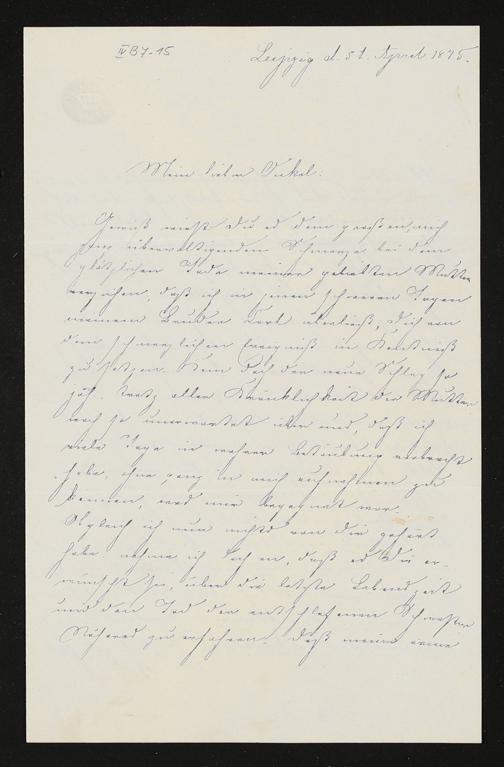 IV B 7-15
Leipzig d. 5t. April 1875.
Mein lieber Onkel:
Gewiß wirst Du es dem großen, mich
ganz überwältigenden Schmerze bei dem
plötzlichen Tode meiner geliebten Mutter
verzeihen, daß ich in jenen schweren Tagen
meinem Bruder überließ, Dich von
dem schmerzlichen Ereigniß in Kenntniß
zu setzen. Kam doch der neue Schlag so
jäh, trotz aller Kränklichkeit der Mutter
noch so unerwartet über uns, daß ich
viele Tage in wahrer Betäubung verbracht
habe, ohne ganz in mich aufnehmen zu
können, was mir begegnet war.
Obgleich ich nun nichts von Dir gehört
habe, nehme ich doch an, daß es Dir er-
wünscht sei, über die letzte Lebenszeit
und den Tod der entschlafenen Schwester
Näheres zu erfahren. Daß meine arme